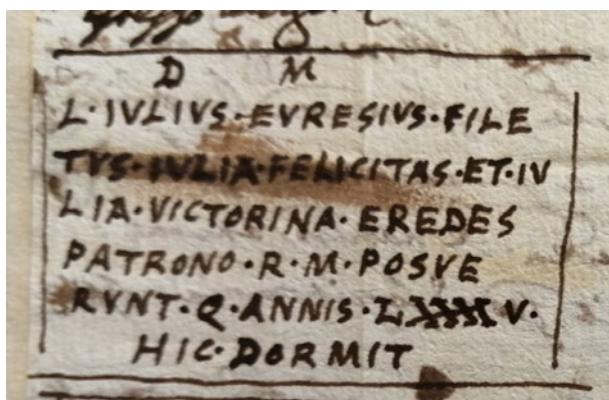 D M
L·IVLIVS·EVRESIVS·FILE
TVS·IVLIA·FELICITAS·ET·IV
LIA·VICTORINA·EREDES
PATRONO·R·M·POSVE
RVNT·Q·ANNIS·LXXXXV·
HIC·DORMIT